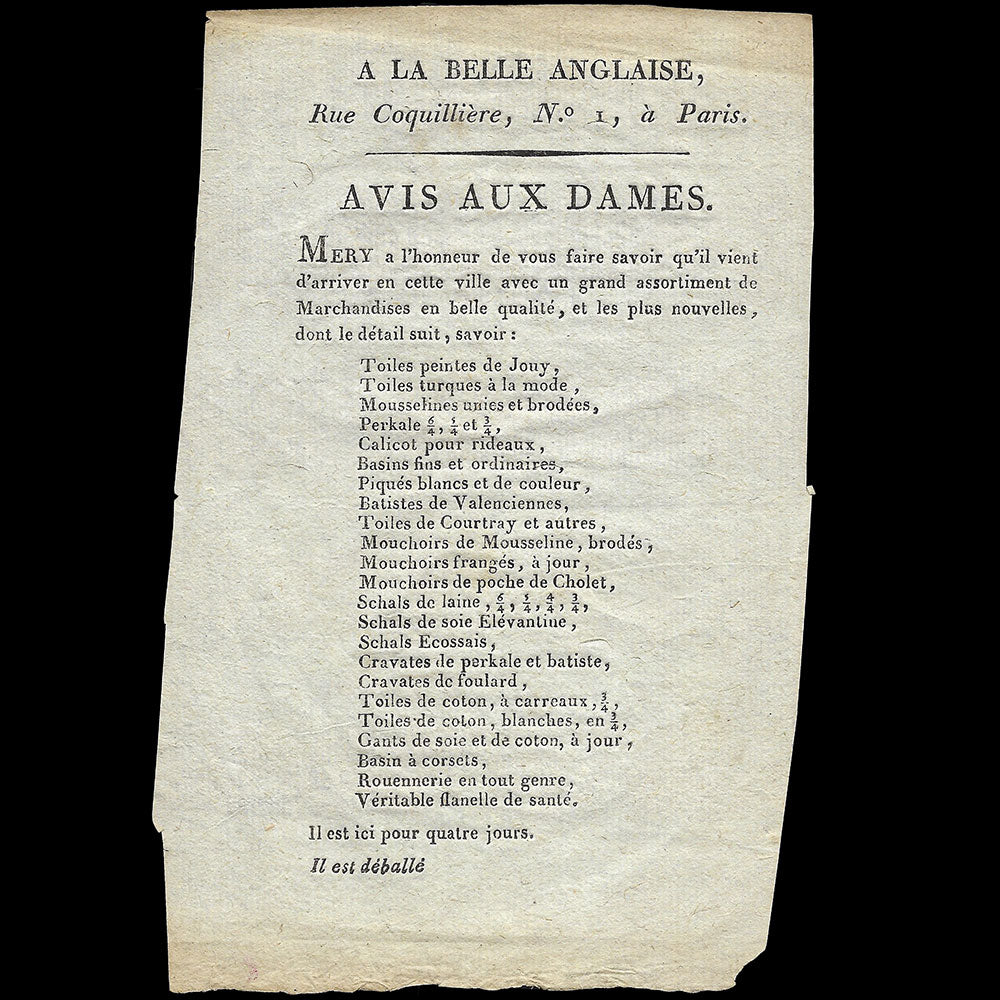 A LA BELLE ANGLAISE,
Rue Coquillière, N.º 1, à Paris.
AVIS AUX DAMES.
MERY a l'honneur de vous faire savoir qu'il vient
d'arriver en cette ville avec un grand assortiment de
Marchandises en belle qualité, et les plus nouvelles,
dont le détail suit, savoir :
Toiles peintes de Jouy,
Toiles turques à la mode,
Mousselines unies et brodées,
Perkale 6/4, 5/4 et 3/4,
Calicot pour rideaux,
Basins fins et ordinaires,
Piqués blancs et de couleur,
Batistes de Valenciennes,
Toiles de Courtray et autres,
Mouchoirs de Mousseline, brodés,
Mouchoirs frangés, à jour,
Mouchoirs de poche de Cholet,
Schals de laine, 6/4, 5/4, 4/4, 3/4,
Schals de soie Elévantine,
Schals Ecossais,
Cravates de perkale et batiste,
Cravates de foulard,
Toiles de coton, à carreaux, 3/4,
Toiles de coton, blanches, en 3/4,
Gants de soie et de coton, à jour,
Basin à corsets,
Rouennerie en tout genre,
Véritable flanelle de santé.
Il est ici pour quatre jours.
Il est déballé